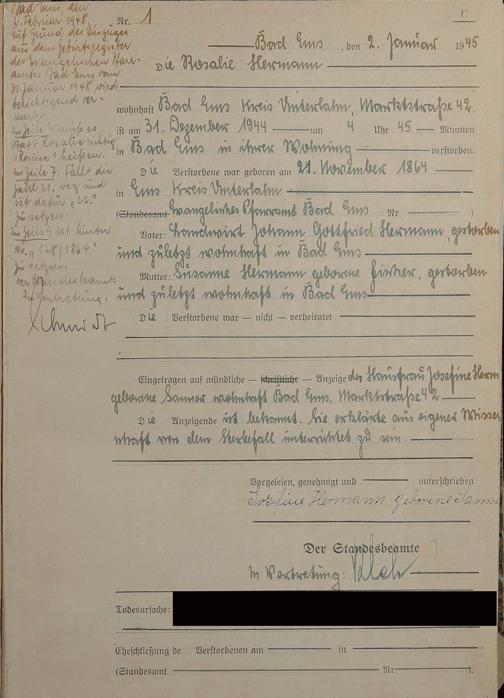 Bad Ems, den
2. Februar 1948.
Auf Grund des Auszuges
aus dem Geburtsregister
des Evangelischen Pfarr-
amtes Bad Ems vom
31. Januar 1948 wird
berichtigend ver-
merkt:
In Zeile 1 muss es
statt Rosalie richtig
heißen.
In Zeile 7 fällt die
Zahl 21. weg und
ist dafür „22."
zu setzen.
In Zeile 9 ist hinter
Nr. „128/1864"
zu setzen.
Der Standesbeamte:
In Vertretung.
Schmidt
Nr. 1
C
Bad Ems, den 2. Januar 1945
Die Rosalie Hermann
wohnhaft Bad Ems Kreis Unterlahn, Marktstraße 42
ist am 31. Dezember 1944 um 4 Uhr 45 Minuten
in Bad Ems in ihrer Wohnung verstorben.
Die Verstorbene war geboren am 21. November 1864
in Ems Kreis Unterlahn
(Standesamt Evangelisches Pfarramt Bad Ems Nr. )
Vater: Landwirt Johann Gottfried Hermann gestorben
und zuletzt wohnhaft in Bad Ems
Mutter: Susanne Hermann geborne gestorben
und zuletzt wohnhaft in Bad Ems
Die Verstorbene war — nicht — verheiratet
Eingetragen auf mündliche — schriftliche — Anzeige der Hausfrau Josefine Herm
geborene Sanner wohnhaft Bad Ems. Marktstraße 42
Die Anzeigende ist bekannt. Sie erklärte aus eigener Wissen
schaft von dem Sterbefall unterrichtet zu sein.
Vorgelesen, genehmigt und unterschrieben
Josefine Hermann geborene Sann
Der Standesbeamte
In Vertretung:
Todesursache:
Eheschließung de Verstorbenen am in
(Standesamt Nr. ).